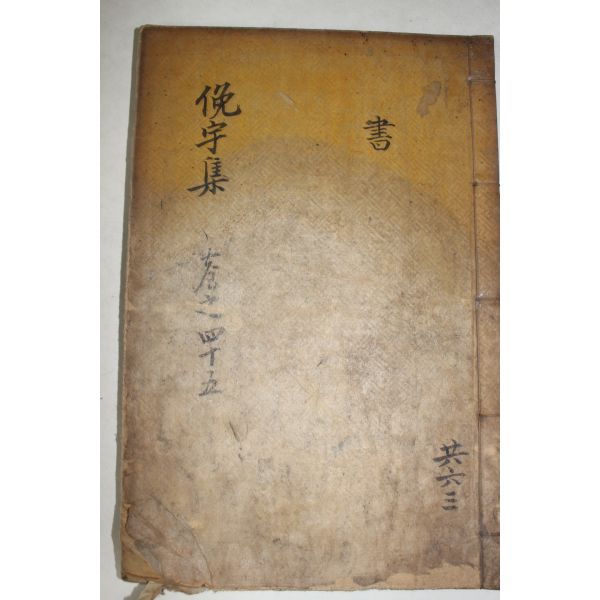 共六三
書
俛宇集 卷之四十五